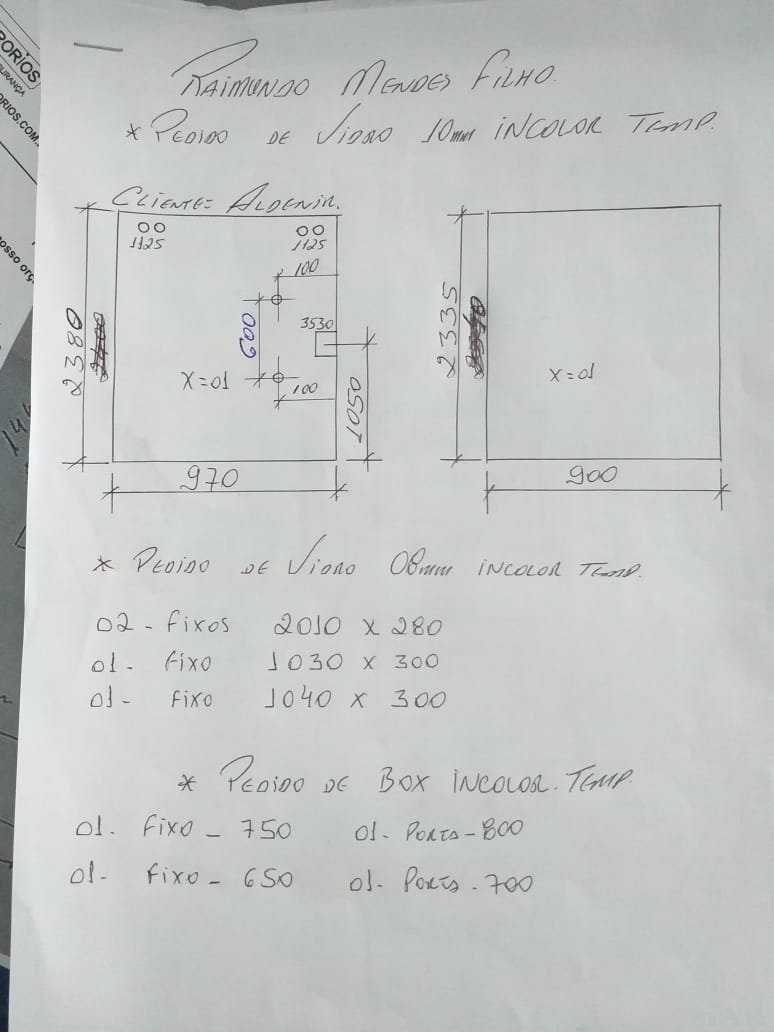 PORIOS
URANÇA
ORIOS.COM.
osso orç
RAIMUNDO MENDES FILHO.
* PEDIDO DE VIDRO 10mm INCOLOR TEMP.
CLIENTE= ALDENIR.
1125
1125
100
600
3530
X=01
100
1050
2380
970
2335
X=01
900
* PEDIDO DE VIDRO 08mm INCOLOR TEMP.
02 - FIXOS 2010 X 280
01 - FIXO 1030 X 300
01 - FIXO 1040 X 300
* PEDIDO DE BOX INCOLOR. TEMP.
01. FIXO - 750 01- PORTA - 800
01- FIXO - 650 01- PORTA - 700